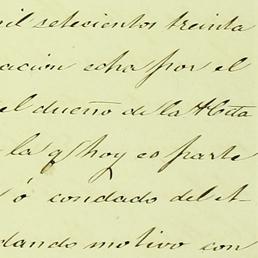 mil setecientos treinta
ación echa por el
el dueño de la
la q hoy es parte
ó condado del et-
dando motivo con